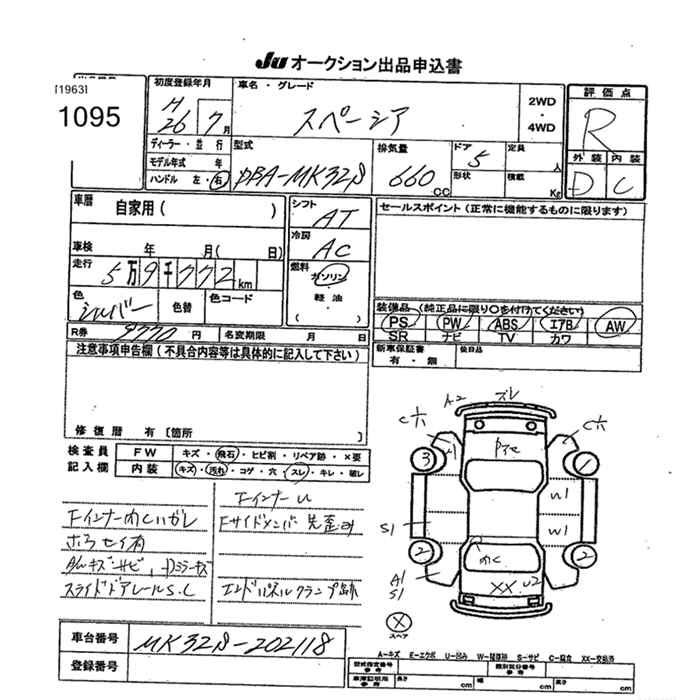 Ju オークション出品申込書
[1963]
1095
初度登録年月
H
26 7月
車名・グレード
スペーシア
2WD
・
4WD
評価点
R
外装 内装
D C
ディーラー・並行
モデル年式 年
ハンドル 左・右
型式
DBA-MK32S
排気量
660 CC
ドア 5
形状
定員 人
積載 Kg
車暦
自家用( )
シフト
AT
セールスポイント(正常に機能するものに限ります)
冷房
AC
車検 年 月( 日)
走行
5万9千772km
燃料
ガソリン
・
軽油
・
( )
色
シルバー
色替
色コード
装備品(純正品に限り○を付けてください)
PS PW ABS エアB AW
SR ナビ TV カワ
R券 9770円
名変期限 月 日
新車保証書
有・無
後日品
注意事項申告欄(不具合内容等は具体的に記入して下さい)
修復歴 有〔箇所 〕
検査員
記入欄
FW キズ・飛石・ヒビ割・リペア跡・×要
内装 キズ・汚れ・コゲ・穴・スレ・キレ・破レ
Fインナー凹
Fインナー凹
Fサイドメンバー先歪み
スライドドアレールS.C
エンドパネルクランプ跡
A2 スレ
C穴 C穴
A1
3 1
W1
S1 W1
2 2
A1
S1
XX U2
X
スペア
車台番号 MK32S-202118
登録番号
A-キズ E-エクボ U-凹み W-補修跡 S-サビ C-腐食 XX-交換済
型式指定番号
参考
類別区分番号
参考
車庫証明用
参考
長さ cm 幅 cm 高さ cm